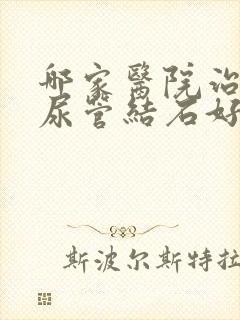 那家醫院治
尿管結石好
斯波尔斯特拉